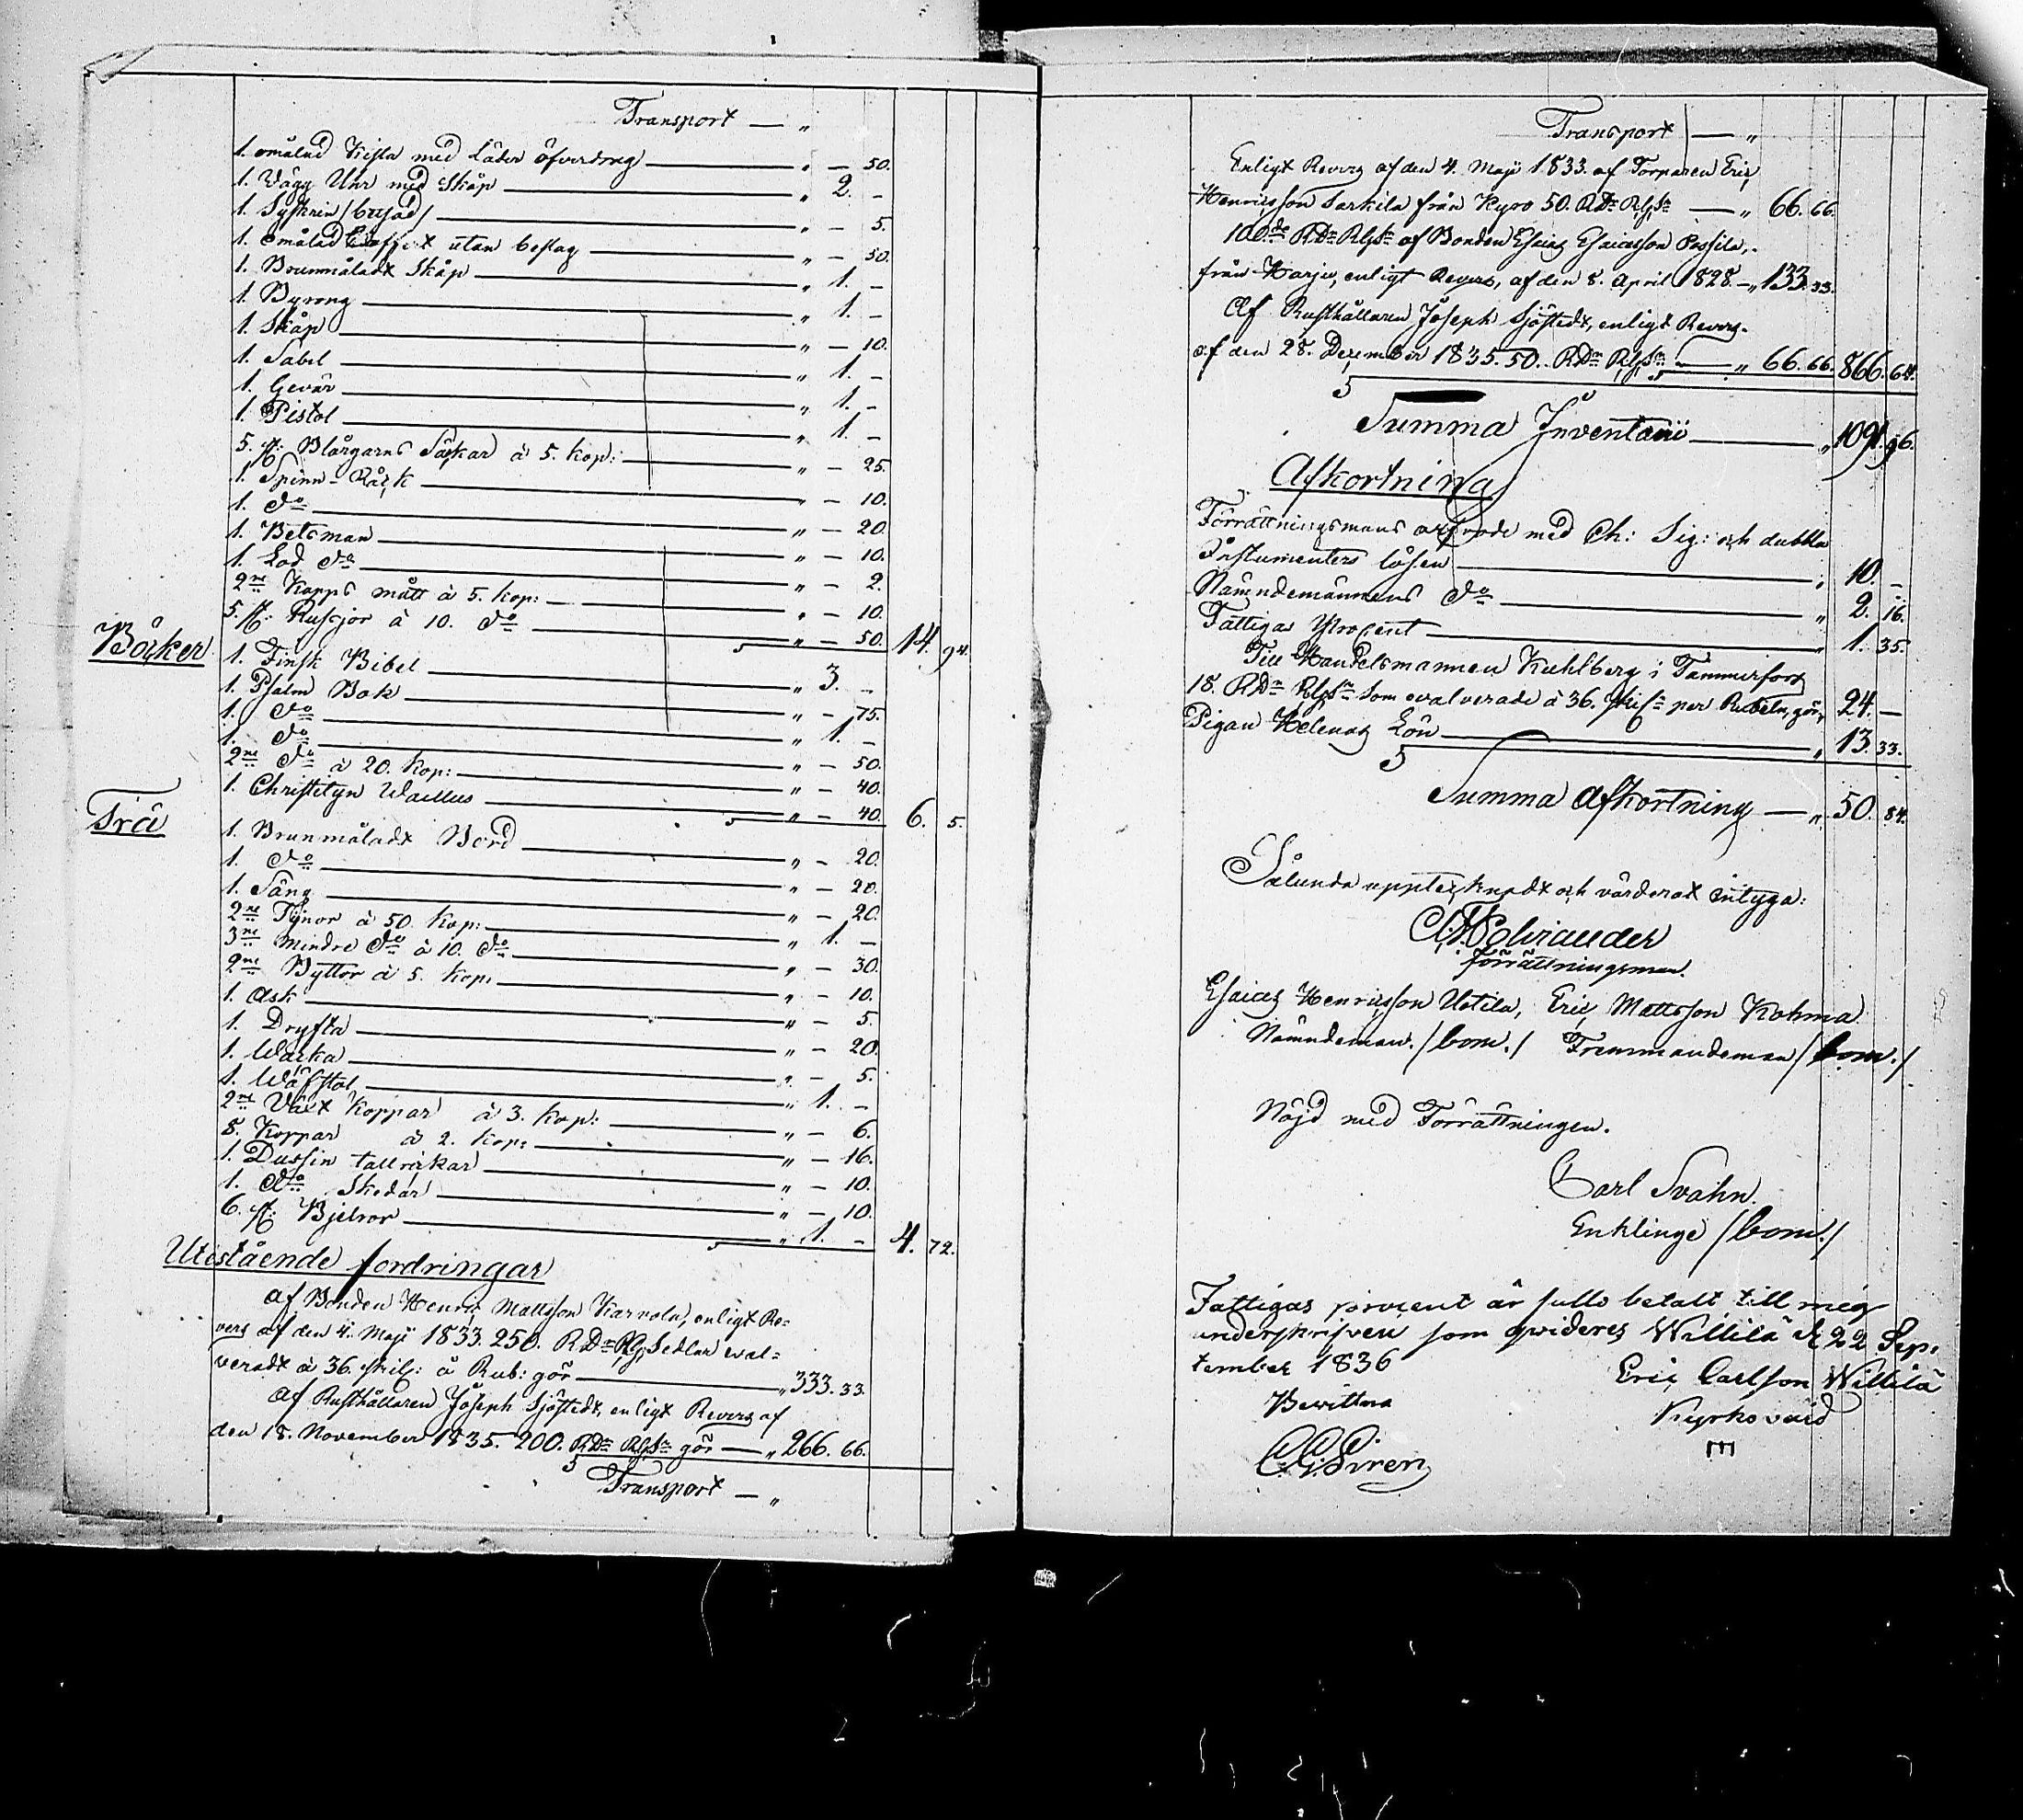 Transport — "
1. omålad Kista med Läder öfverdrag " — 50.
1. Vägg Uhr med Skåp " 2. —
1. Syskrin /betsad/ " — 5.
1. omålad utan beslag " — 50.
1. Brunmåladt Skåp " 1. —
1. Byrong " 1. —
1. Skåp " — 10.
1. Sabel " 1. —
1. Gevär " 1. —
1. Pistol " 1. —
5. st: Blårgarns Säckar à 5. kop: " — 25.
1. Spinn-Råck " — 10.
1. do " — 20.
1. Betsman " — 10.
1. Lod do " — 2.
2ne Kapps mått à 5. kop: " — 10.
5. st: Rysjor à 10. do " — 50. 14. 94.
Böcker
1. Finsk Bibel " 3. —
1. Psalm Bok " — 75.
1. do " 1. —
1. do " — 50.
2ne do à 20. kop: " — 40.
1. Christilyn Waellus " — 40. 6. 5.
Trä
1. Brunmåladt Bord " — 20.
1. do " — 20.
1. Säng " — 20.
2ne Tynor à 50. kop: " 1. —
3ne mindre do à 10. do " — 30.
2ne Byttor à 5. kop: " — 10.
1. Ask " — 5.
1. Dryfta " — 20.
1. Wacka " — 5.
1. Wäfstol " 1. —
2ne Växt Koppar à 3. kop: " — 6.
8. Koppar à 2. kop: " — 16.
1. Dussin tallrickar " — 10.
1. do Skedar " — 10.
6. st: Bjelkor " 1. — 4. 72.
Utestående fordringar
af Bonden Henric Mattsson Karvola, enligt Re=
vers af den 4. Maji 1833. 250. RDr Rgs Sedlar eval=
veradt à 36. skil: å Rub: gör " 333. 33.
af Rusthållaren Joseph Sjöstedt, enligt Revers af
den 18. November 1835. 200. RDr RgSr gör — " 266. 66.
Transport — "
Transport — "
Enligt Revers af den 4. Maji 1833. af Torparen Eric
Henricsson Sarkila från Kyro 50. RDr RgSr — " 66. 66.
100.de RDr RgSr af Bonden Esaias Esaiasson Possila,
från Harju, enligt Revers, af den 8. April 1828. — " 133. 33.
Af Rusthållaren Joseph Sjöstedt, enligt Revers
af den 28. December 1835. 50. RDr RgSr — " 66. 66. 866. 64.
Summa Inventarii " 1091. 96.
Afkortning
Förrättningsmans arfvode med Ch: Sig: och dubbla
Instrumenters lösen " 10. —
Nämndemannens do " 2. 16.
Fattigas Procent " 1. 35.
Till Handelsmannen Kuhlberg i Tammerfors
18. RDr RgSr som evalverade à 36. skil: per Rubeln, gör, 24. —
Pigan Helenas Lön " 13. 33.
Summa Afkortning — " 50. 84.
Sålunda upptecknadt och värderat intyga:
Förrättningsman.
Esaias Henricsson Uotila, Eric Mattsson Kohma
Nämndeman. /bom./ Fremmandeman /bom./
Nöjd med Förrättningen.
Carl Svahn.
Enklinge /bom./
Fattigas procent är fullo betalt till mig
underskrifven som qvideres Willilä d 22 Sep.
tember 1836
Eric Carlson Willilä
Bevittna Kyrkovärd
C.G. Siren